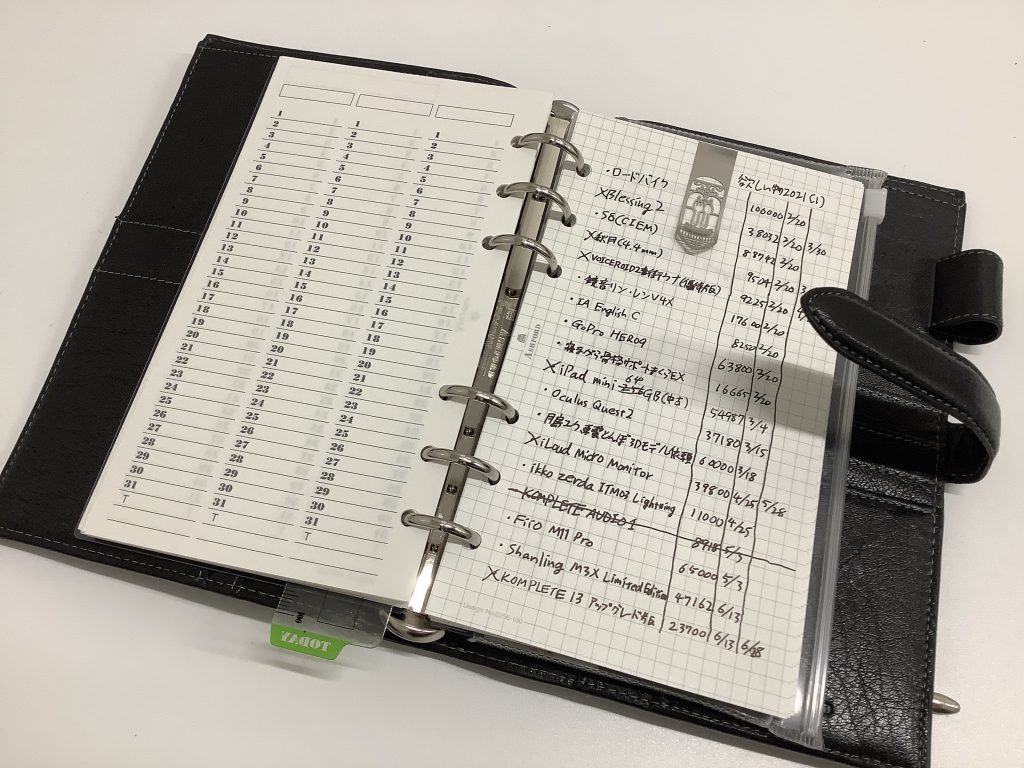 1 1 1
2 2 2
3 3 3
4 4 4
5 5 5
6 6 6
7 7 7
8 8 8
9 9 9
10 10 10
11 11 11
12 12 12
13 13 13
14 14 14
15 15 15
16 16 16
17 17 17
18 18 18
19 19 19
20 20 20
21 21 21
22 22 22
23 23 23
24 24 24
25 25 25
26 26 26
27 27 27
28 28 28
29 29 29
30 30 30
31 31 31
T T T
TODAY
ASHFORD
しい物2021(1)
・ロードバイク 100000 2/20
×Blessing 2 38032 3/20 3/30
・S8(CIEM) 88742 3/20
(4.4mm) 9504 3/20
×VOICEROID2 ウナ 9225 2/20
リン・レンV4X 17600 2/20
・IA English C 8250 2/20
・GoPro HERO9 63800 3/20
EX 16665 3/20
×iPad mini 64 GB(中古) 54987 3/4
・Oculus Quest2 37180 3/15
3Dモデル 60000 3/18
×iLoud Micro Monitor 39800 4/25 5/28
・ikko zerda ITM03 Lightning 11000 4/25
KOMPLETE AUDIO 1 5/3
・FiiO M11 Pro 65000 5/3
・Shanling M3X Limited Edition 47162 6/13
×KOMPLETE 13 アップグレード版 23700 6/13 6/28
Design No.0296-100